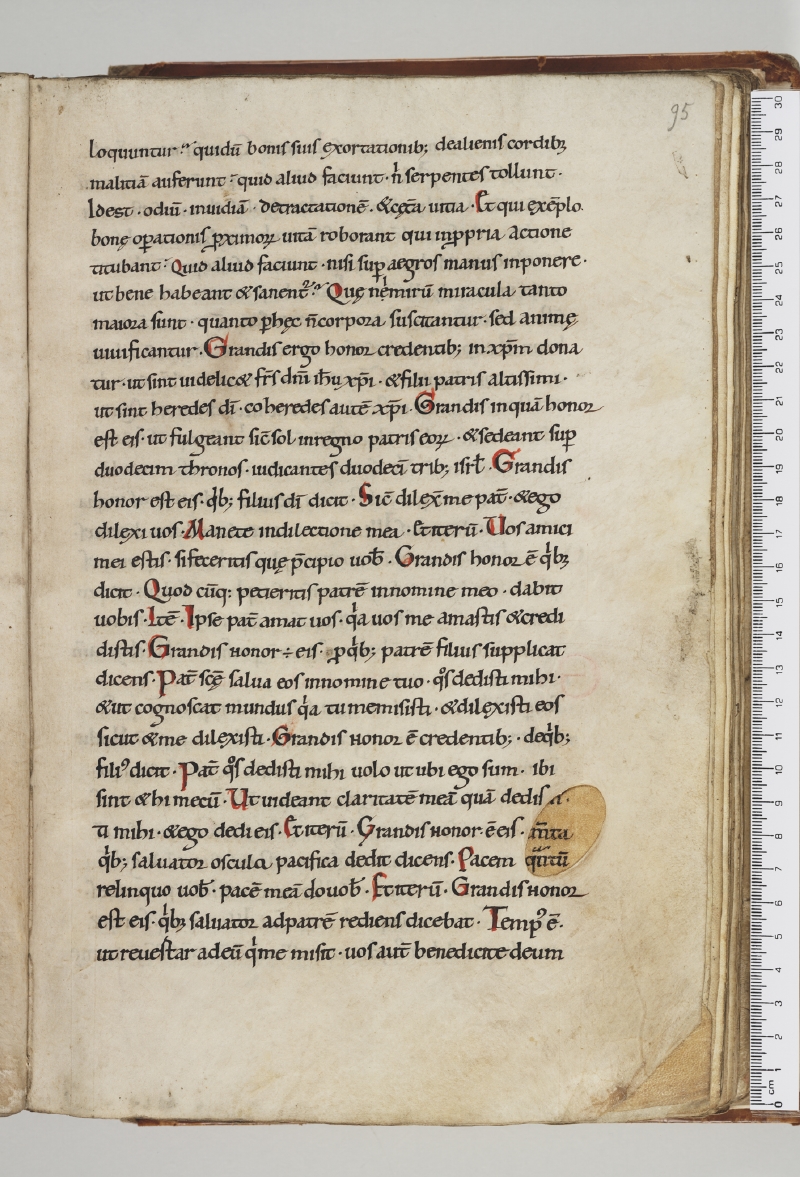 95
loquuntur? quidū bonis suis exortationib; dealienis cordib;
malitiā auferunt · quid aliud faciunt · n̄ serpentes tollunt ·
Idest · odiū · inuidiā · detractationē · &cęta uitia · Et qui exēplo
bonę oꝑationis ꝓximoꝝ uitā roborant qui inꝓpria Actione
titubant · Quid aliud faciunt · nisi suꝑ aegros manus inponere ·
ut bene habeant & sanent᷒? Quę nēmirū miracula tanto
maiora sunt · quanto ꝑhęc n̄corpora suscitantur · sed animę
uiuificantur · Grandis ergo honor credentib; inxp̄m dona
tur · ut sint uidelic& fr̄s dn̄i ih̄u xp̄i · &filii patris altissimi ·
ut sint heredes dī · coheredes autē xp̄i · Grandis inquā honor
est eis · ut fulgeant sic̄ sol inregno patris eoꝝ · &sedeant suꝑ
duodecim thronos · iudicantes duodecī trib; isrł · Grandis
honor est eis · qͥb; filius dī dicit · Sic̄ dilex̄ me pat̄ · &ego
dilexi uos · Manete indilectione mea · Etiterū · Uos amici
mei estis · sifeceritis quę p̄cipio uob̄ · Grandis honor ē qͥb;
dicit · Quod cūq: petieritis patrē innomine meo · dabit
uobis · Itē · Ipse pat̄ amat uos · qͥa uos me amastis &credi
distis · Grandis honor ÷ eis · ꝓ qͥb; patrē filius supplicat
dicens · Pat̄ sc̄ę salua eos innomine tuo · qͦs dedisti mihi ·
&ut cognoscat mundus qͥa tu memisisti · &dilexisti eos
sicut &me dilexisti · Grandis honor ē credentib; · deqͥb;
fili᷒ dicit · Pat̄ qͦs dedisti mihi uolo ut ubi ego sum · ibi
sint &hi mecū · Ut uideant claritatē meā quā dedis
ti mihi · &ego dedi eis · Etiterū · Grandis honor ē eis ·
qͥb; saluator oscula pacifica dedit dicens · Pacem
relinquo uob̄ · pacē meā do uob̄ · Etiterū · Grandis honor
est eis · qͥb; saluator adpatrē rediens dicebat · Temp᷒ ē ·
ut reuertar adeū qͥ me misit · uos aut̄ benedicite deum